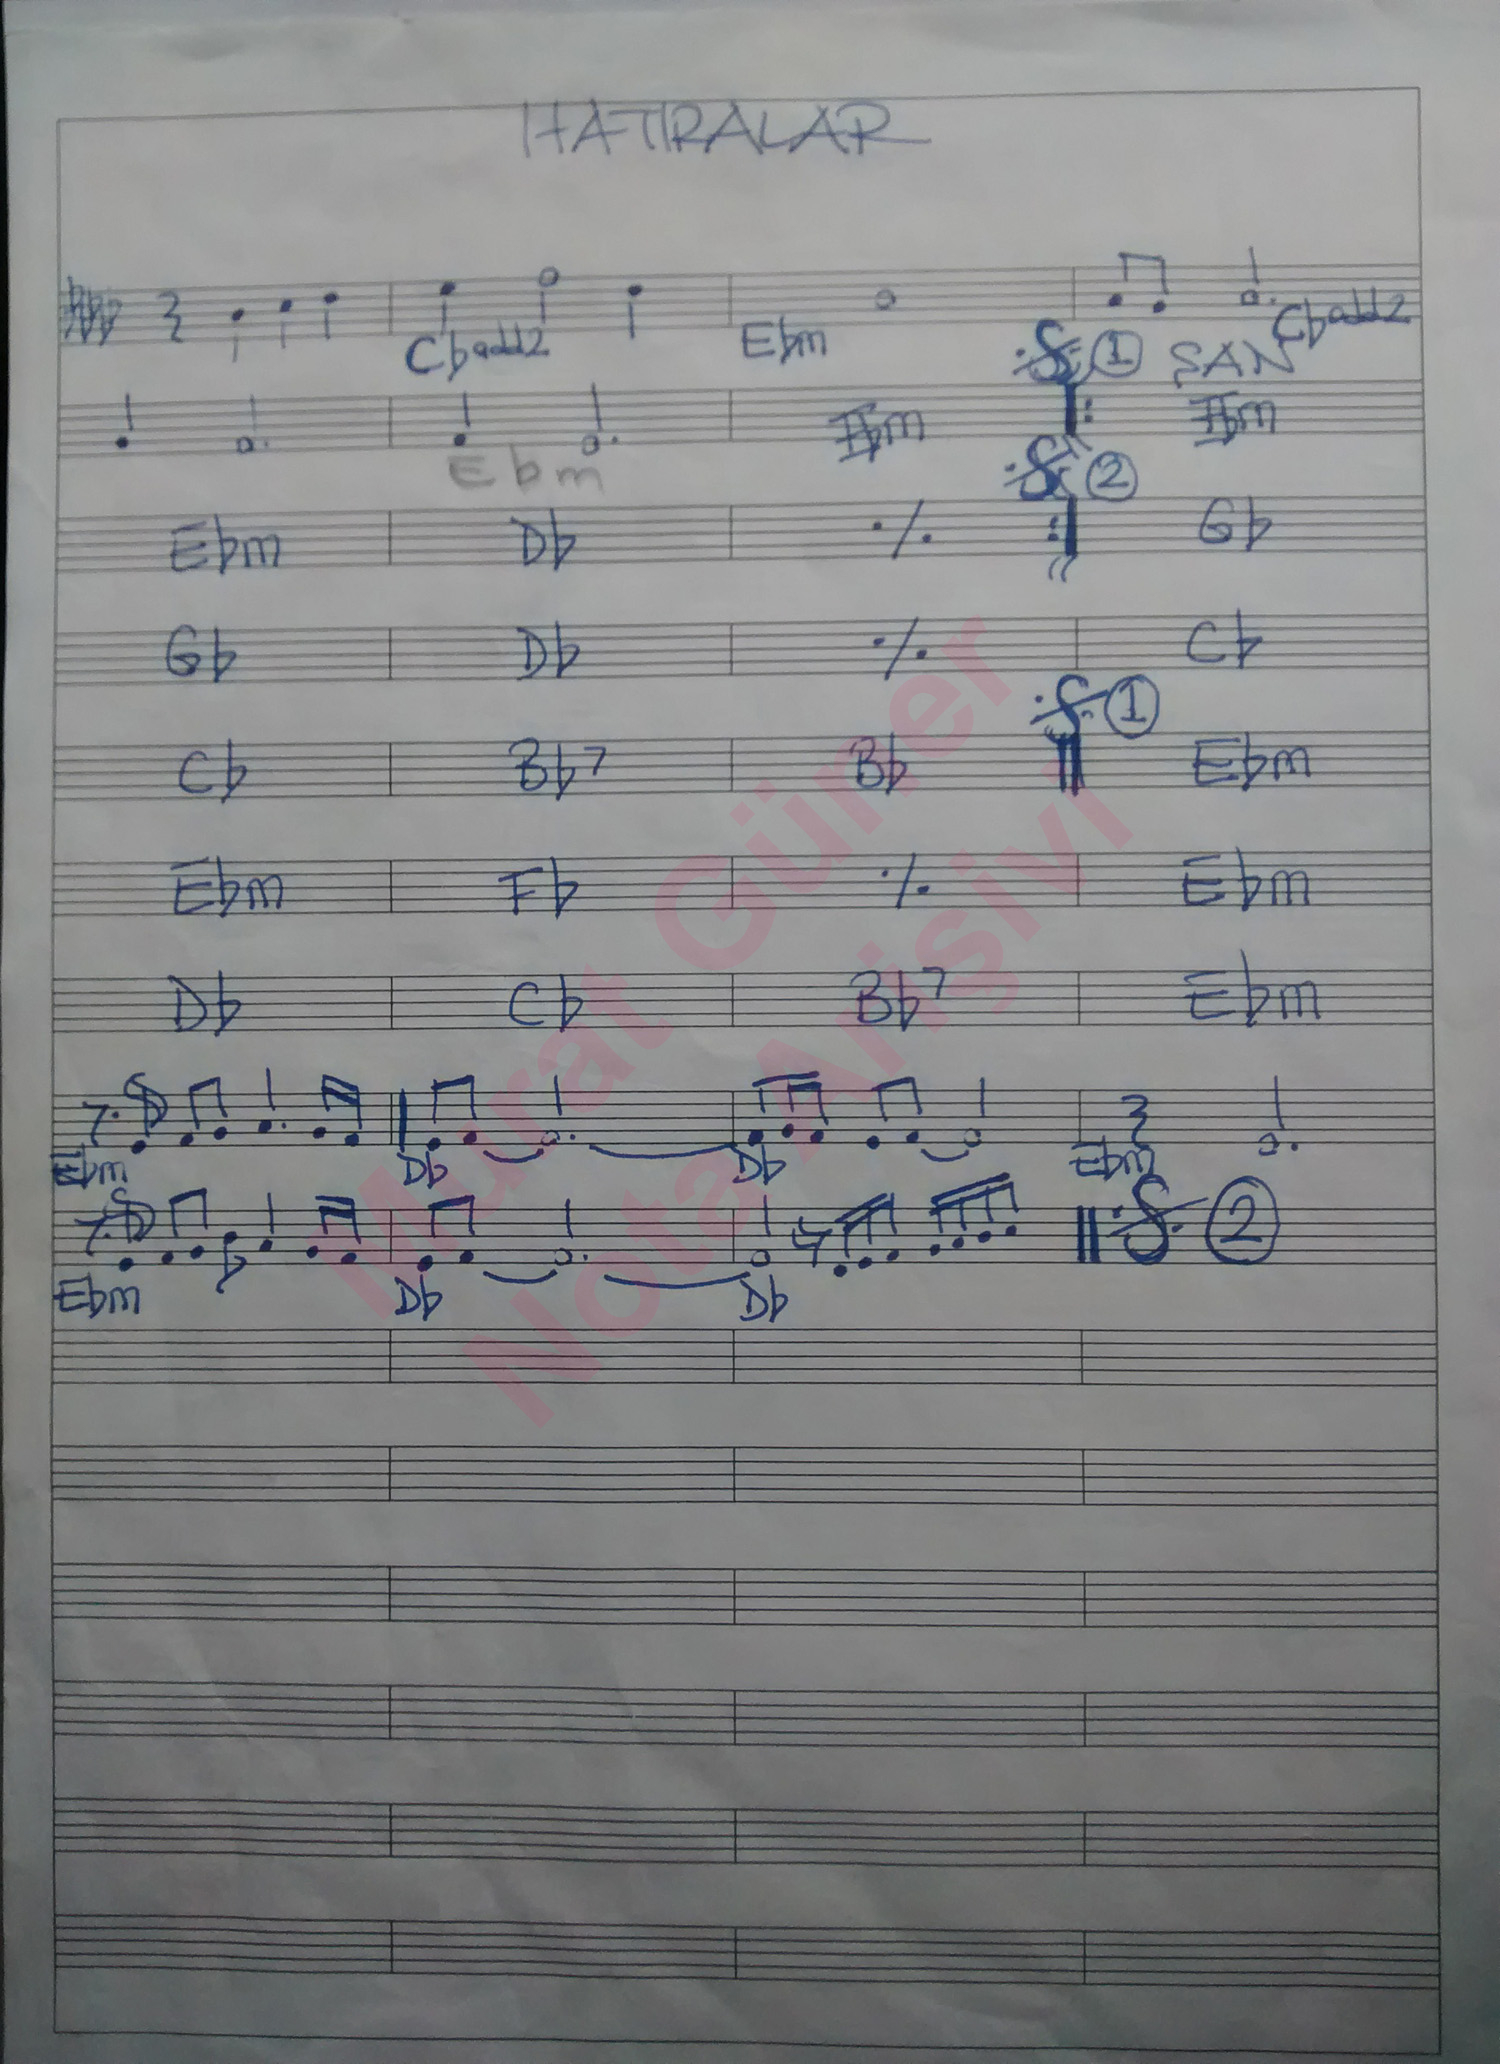 HATIRALAR
Cbadd2 Ebm Cbadd2
1 ŞAN
Ebm Ebm
Ebm
2
Ebm Db ٪ Gb
Gb Db ٪ Cb
1
Cb Bb7 Bb Ebm
Ebm Fb ٪ Ebm
Db Cb Bb7 Ebm
Ebm Db Db Ebm
2
Ebm Db Db
Murat Güner
Nota Arişivi